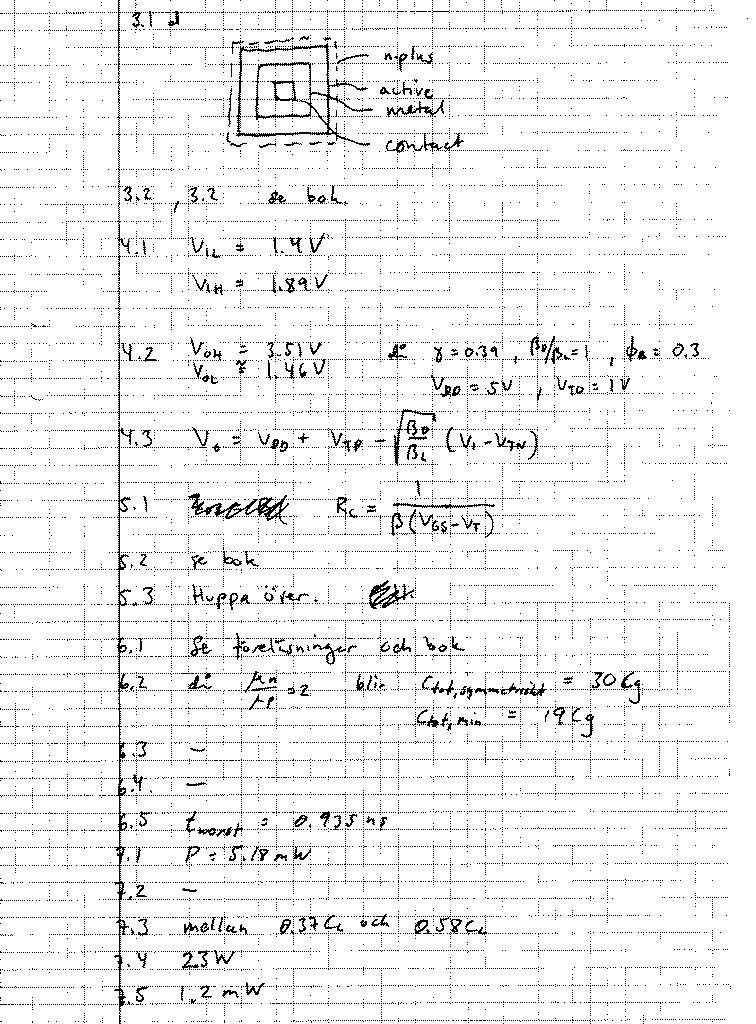 3.1
n-plus
active
metal
contact
3.2, 3.2 se bok.
4.1 V_IL = 1.4 V
V_IH = 1.89 V
4.2 V_OH ≅ 3.51 V då γ = 0.39, β_D/β_L = 1, ϕ_B = 0.3
V_OL ≅ 1.46 V V_DD = 5V, V_T0 = 1V
4.3 V_o = V_DD + V_TP - √(β_D/β_L) (V_I - V_TN)
5.1 R_C = 1/(β(V_GS - V_T))
5.2 se bok
5.3 Huppa över.
6.1 Se föreläsningar och bok
6.2 då μn/μp = 2 blir C_tot,symmetriskt = 30 Cg
C_tot,min = 19 Cg
6.3 —
6.4. —
6.5 t_worst = 0.935 ns
7.1 P = 5.18 mW
7.2 —
7.3 mellan 0.37 C_L och 0.58 C_L
7.4 23 W
7.5 1.2 mW